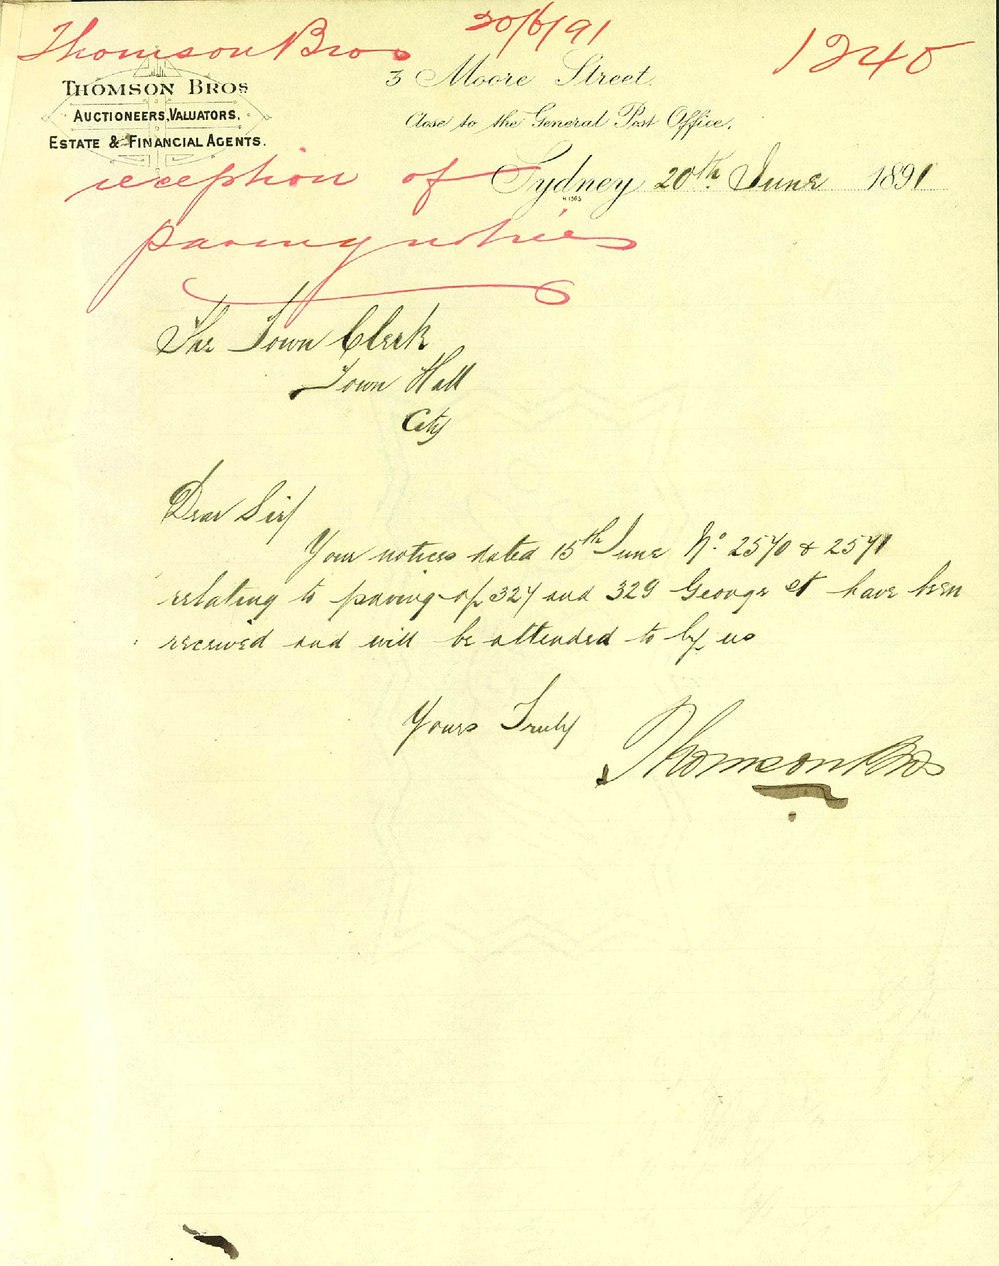 Thomson Bros 20/6/91 1240
THOMSON BROS
AUCTIONEERS, VALUATORS,
ESTATE & FINANCIAL AGENTS.
3 Moore Street.
Close to the General Post Office.
Sydney 20th June 1891
reception of
paving notices
The Town Clerk
Town Hall
City
Dear Sir/
Your notices dated 15th June No. 2570 & 2571
relating to paving of 327 and 329 George st have been
received and will be attended to by us
Yours Truly
Thomson Bros